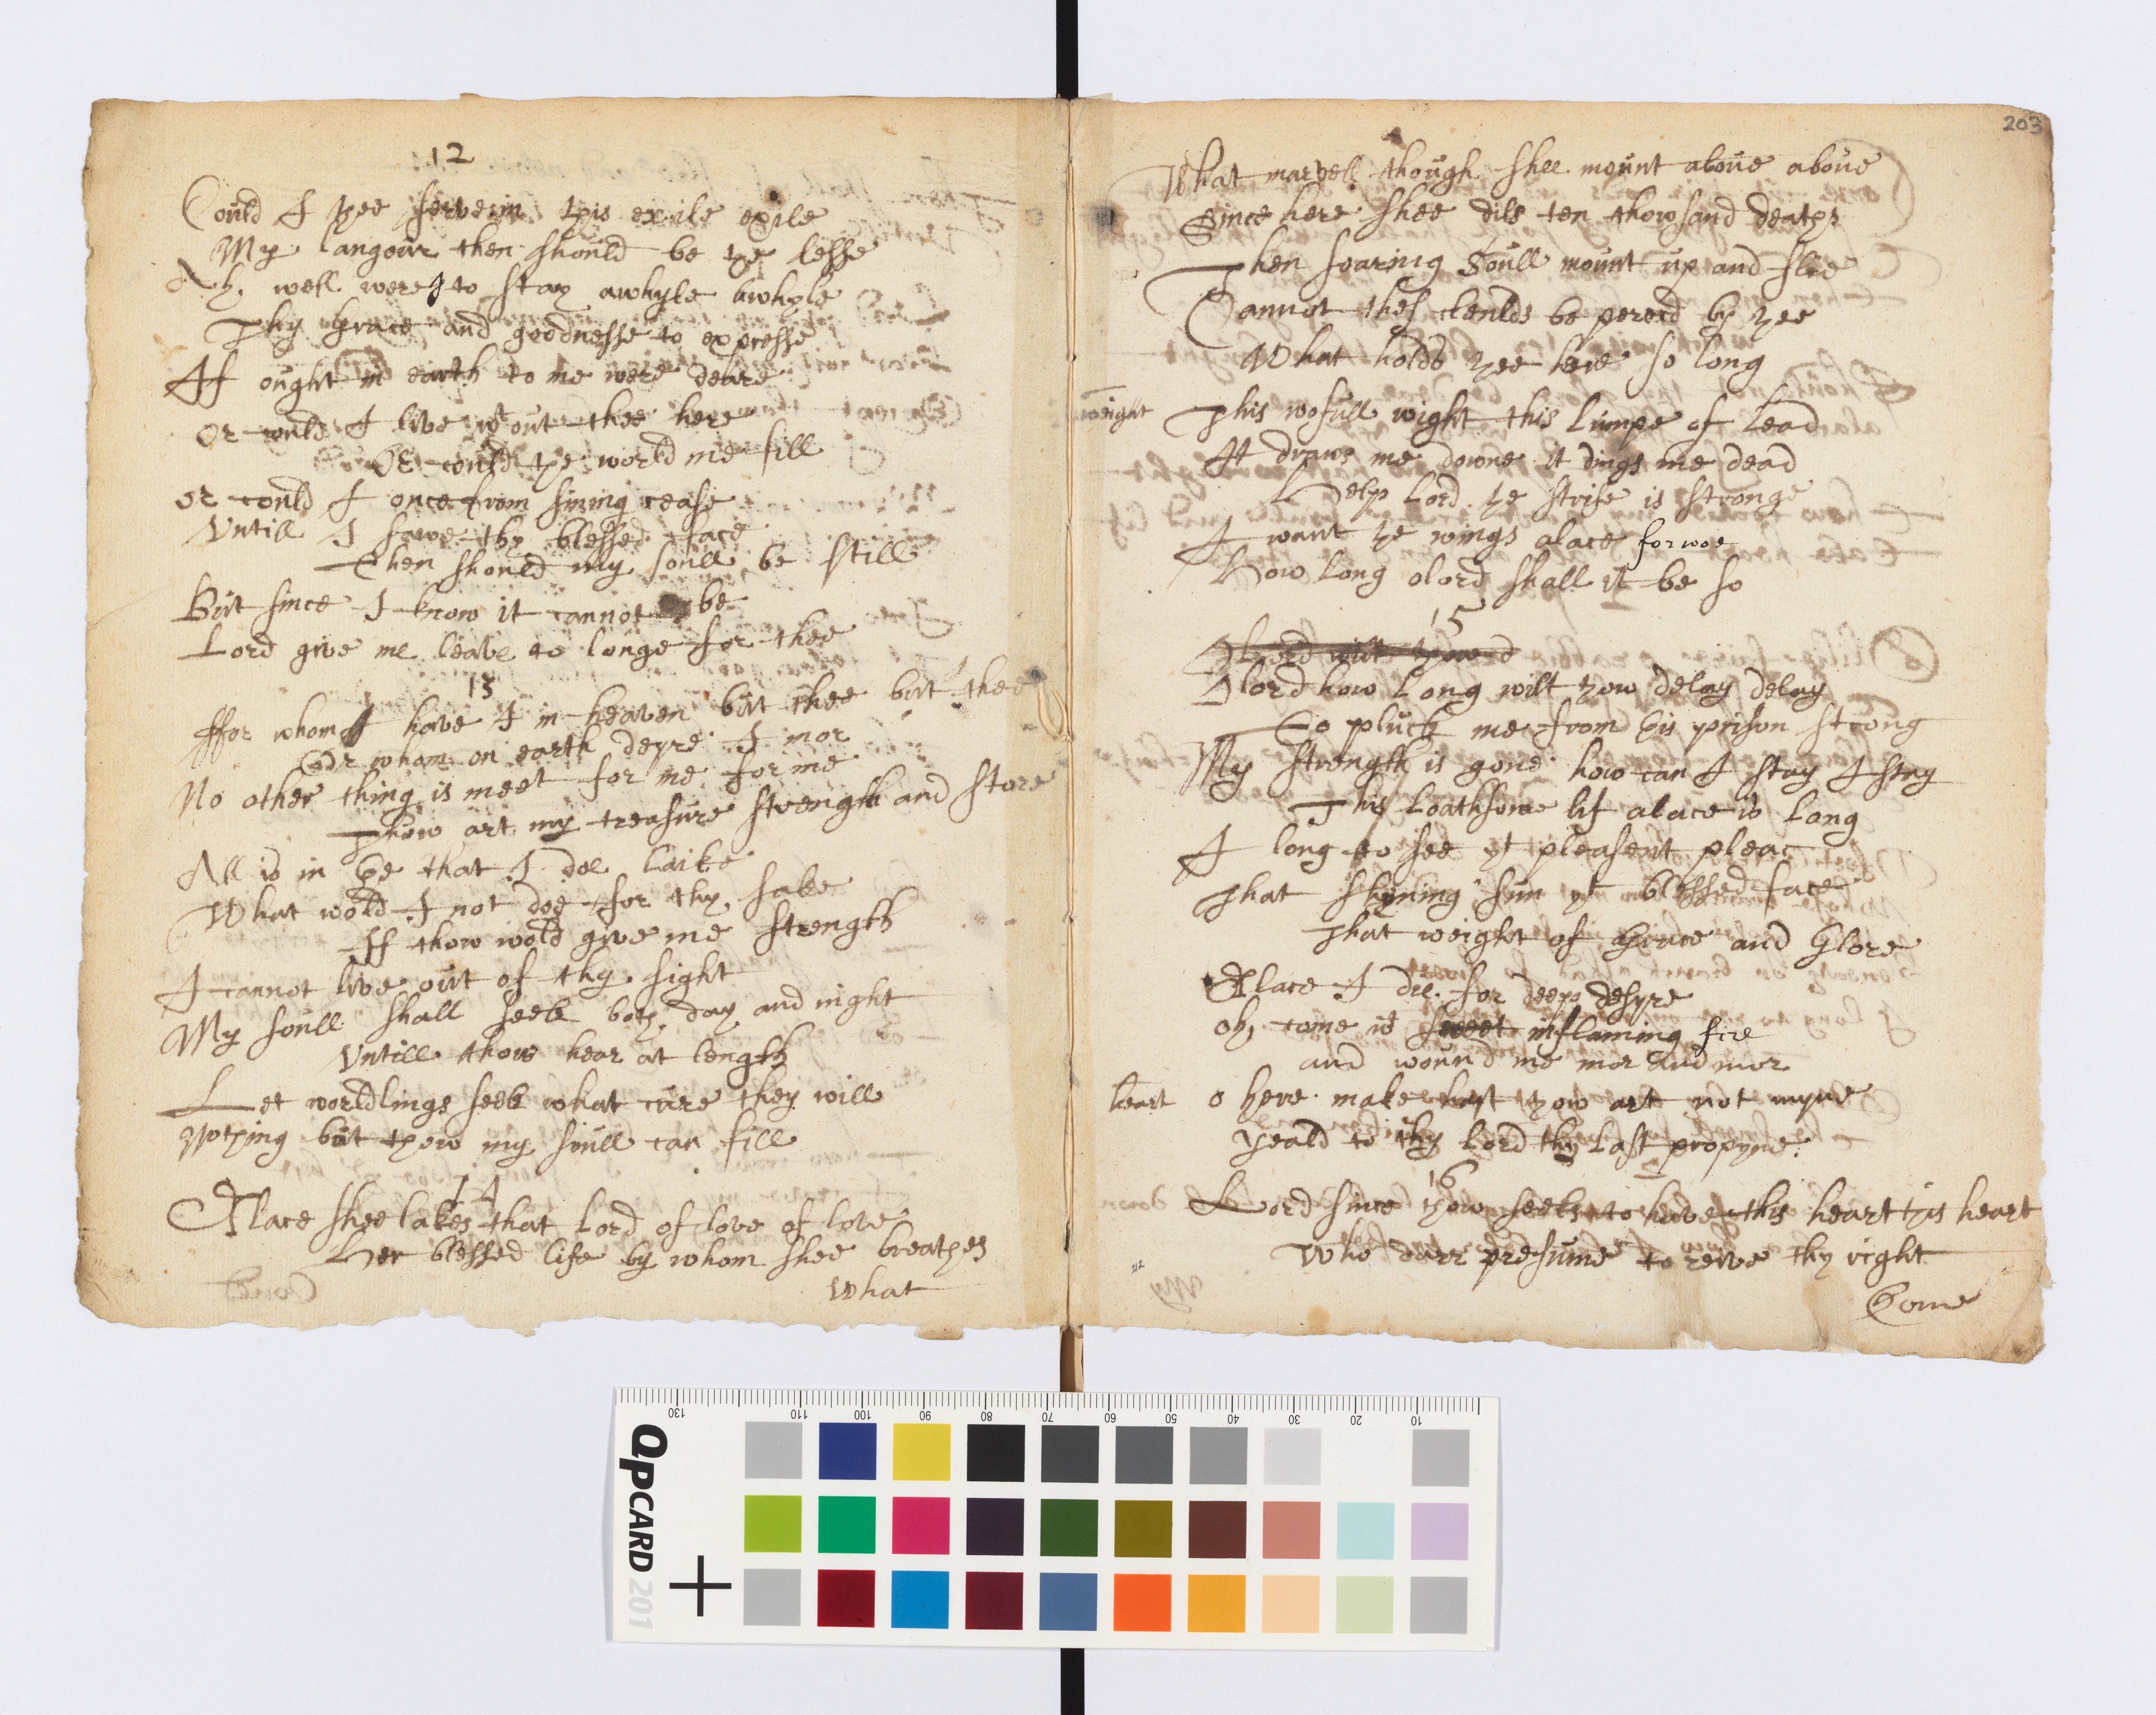 12
Could I yee serve in yis exile exile
My langour then should be ye lesse
Ah, well were I to stay awhyle awhyle
Thy Grace and goodnesse to expresse
If ought in earth to me were deare
Or could I live wt out thee here
Or could ye world me fill
Or could I once from sining cease
Untill I sawe thy blessed face
Then should my soull be still
But since I know it cannot be
Lord give me leave to longe for thee
13
ffor whom I have I in heaven but thee but thee
Or wham on earth desyre I mor
No other thing is meet for me for me
Thow art my treasure strength and store
All is in ye that I doe laike
What wold I not doe for thy sake
If thow wold give me strength
I cannot live out of thy sight
My soull shall seek boty day and night
Untill thow hear at length
Let worldlings seek what cure they will
Notying but yow my soull can fill
14
Alace shee lakes that Lord of love of love
Her blessed life by whom shee breatyes
What
203
What marvell though shee mount above above
Since here shee dils ten thowsand deatys
Then soaring Soull mount up and flie
Cannot thes clouds be perced by yee
What holds yee here so long
weight
This wofull wight this Lumpe of Lead
It draws me downe it dings me dead
Help Lord ye strife is stronge
I want ye wings alace for woe
How Long o lord shall it be so
15
O Lord wilt yow d
O lord how Long wilt yow delay delay
To pluck me from yis prison strong
My strength is gone how can I stay I stay
This Loathsome lif alace is Long
I long to see yt pleasent pleac
That shyning sun yt blessed face
That weight of Grace and Glore
Alace I die for deepe desyre
oh, come wt sweet inflaming fire
and wound me mor and mor
heart
o here make hast yow art not myne
Yeald to thy Lord thy Last propyne
16
Lord since yow seeks to have this heart yis heart
Who darr presume to reive thy right
Come